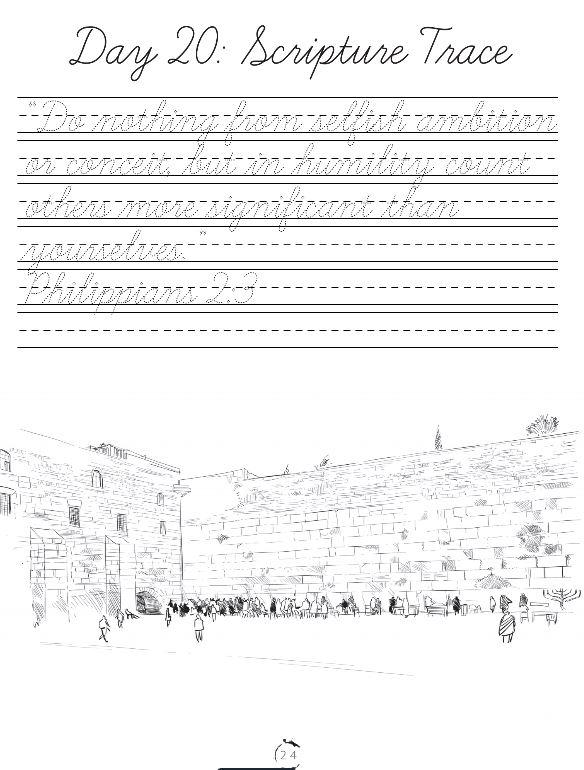 Day 20: Scripture Trace
"Do nothing from selfish ambition
or conceit, but in humility count
others more significant than
yourselves. "
Philippians 2:3
24